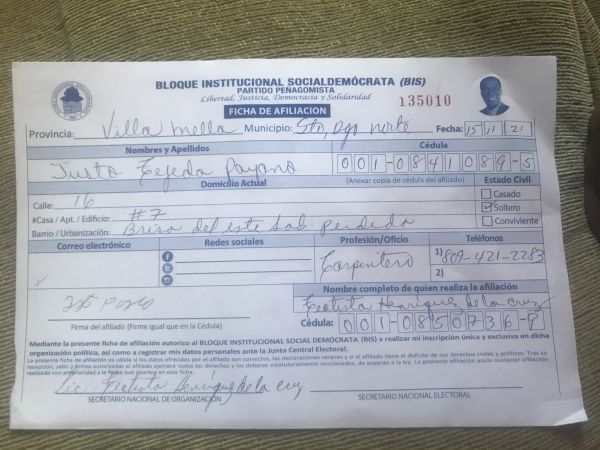 BLOQUE INSTITUCIONAL SOCIALDEMÓCRATA (BIS)
PARTIDO PEÑAGOMISTA
Libertad, Justicia, Democracia y Solidaridad
FICHA DE AFILIACION
135010
Provincia: Villa Mella Municipio: Sto, Dgo norte Fecha: 15 11 21
Nombres y Apellidos Cédula
Justo Tejeda Payano 001-0841089-5
Domicilio Actual (Anexar copia de cédula del afiliado) Estado Civil
Calle: 16
Casado
#Casa / Apt. / Edificio: #7
Soltero
Barrio / Urbanización: Brisa del este Sab. perdida
Conviviente
Correo electrónico Redes sociales Profesión/Oficio Teléfonos
Carpintero 1) 809-421-2283
2)
Nombre completo de quien realiza la afiliación
Teotista Henriquez de la cruz
Firma del afiliado (Firma igual que en la Cédula)
Cédula: 001-0850736-8
Mediante la presente ficha de afiliación autorizo al BLOQUE INSTITUCIONAL SOCIAL DEMÓCRATA (BIS) a realizar mi inscripción única y exclusiva en dicha
organización política, así como a registrar mis datos personales ante la Junta Central Electoral.
La presente ficha de afiliación es valida si los datos ofrecidos por el afiliado son correctos, las declaraciones veraces y si el afiliado tiene el disfrute de sus derechos civiles y políticos. Tras su
recepción, sello y firmas autorizadas el afiliado ejercerá todos los derechos y los deberes estatutariamente sancionados, de acuerdo a la ley. La presente afiliación anula cualquier afiliación
realizada con anterioridad a la fecha que aparece en esta ficha.
Lic. Teotista Henriquez de la cruz
SECRETARIO NACIONAL DE ORGANIZACIÓN SECRETARIO NACIONAL ELECTORAL